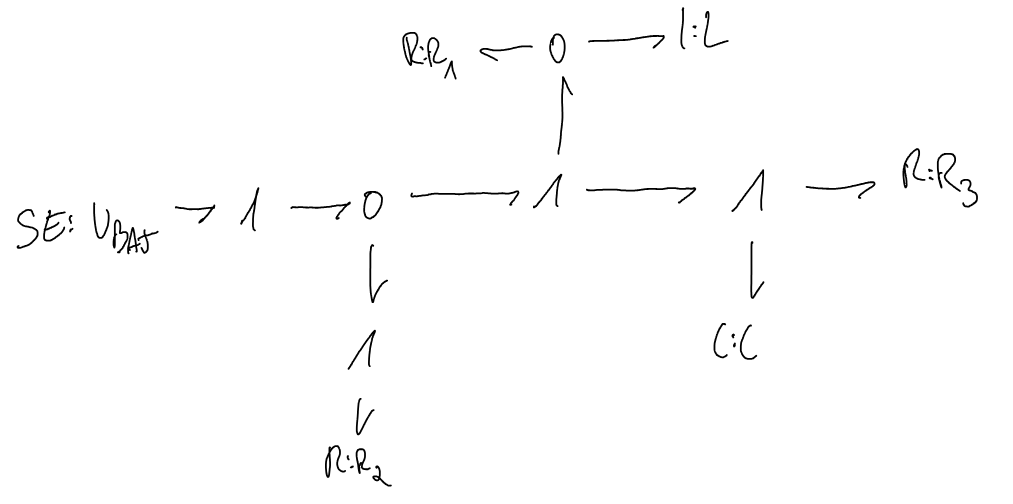 R:R₁ 0 I:L
SE: U_BAT 1 0 1 1 R:R₃
1 C:C
R:R₂